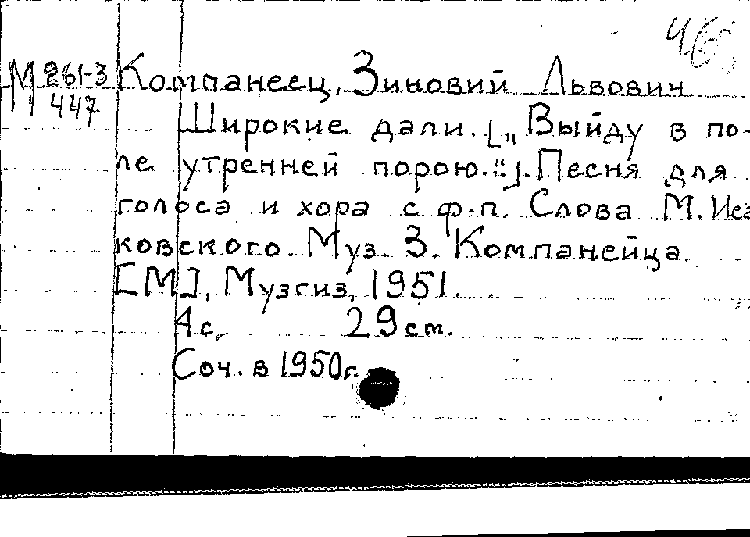 М 261-3
447
Компанеец, Зиновий Львович
Широкие дали. [„Выйду в по-
ле утренней порою.“]. Песня для
голоса и хора с ф.п. Слова М. Иса
ковского. Муз З. Компанейца.
[М], Музгиз, 1951.
4с. 29см.
Соч. в 1950г.